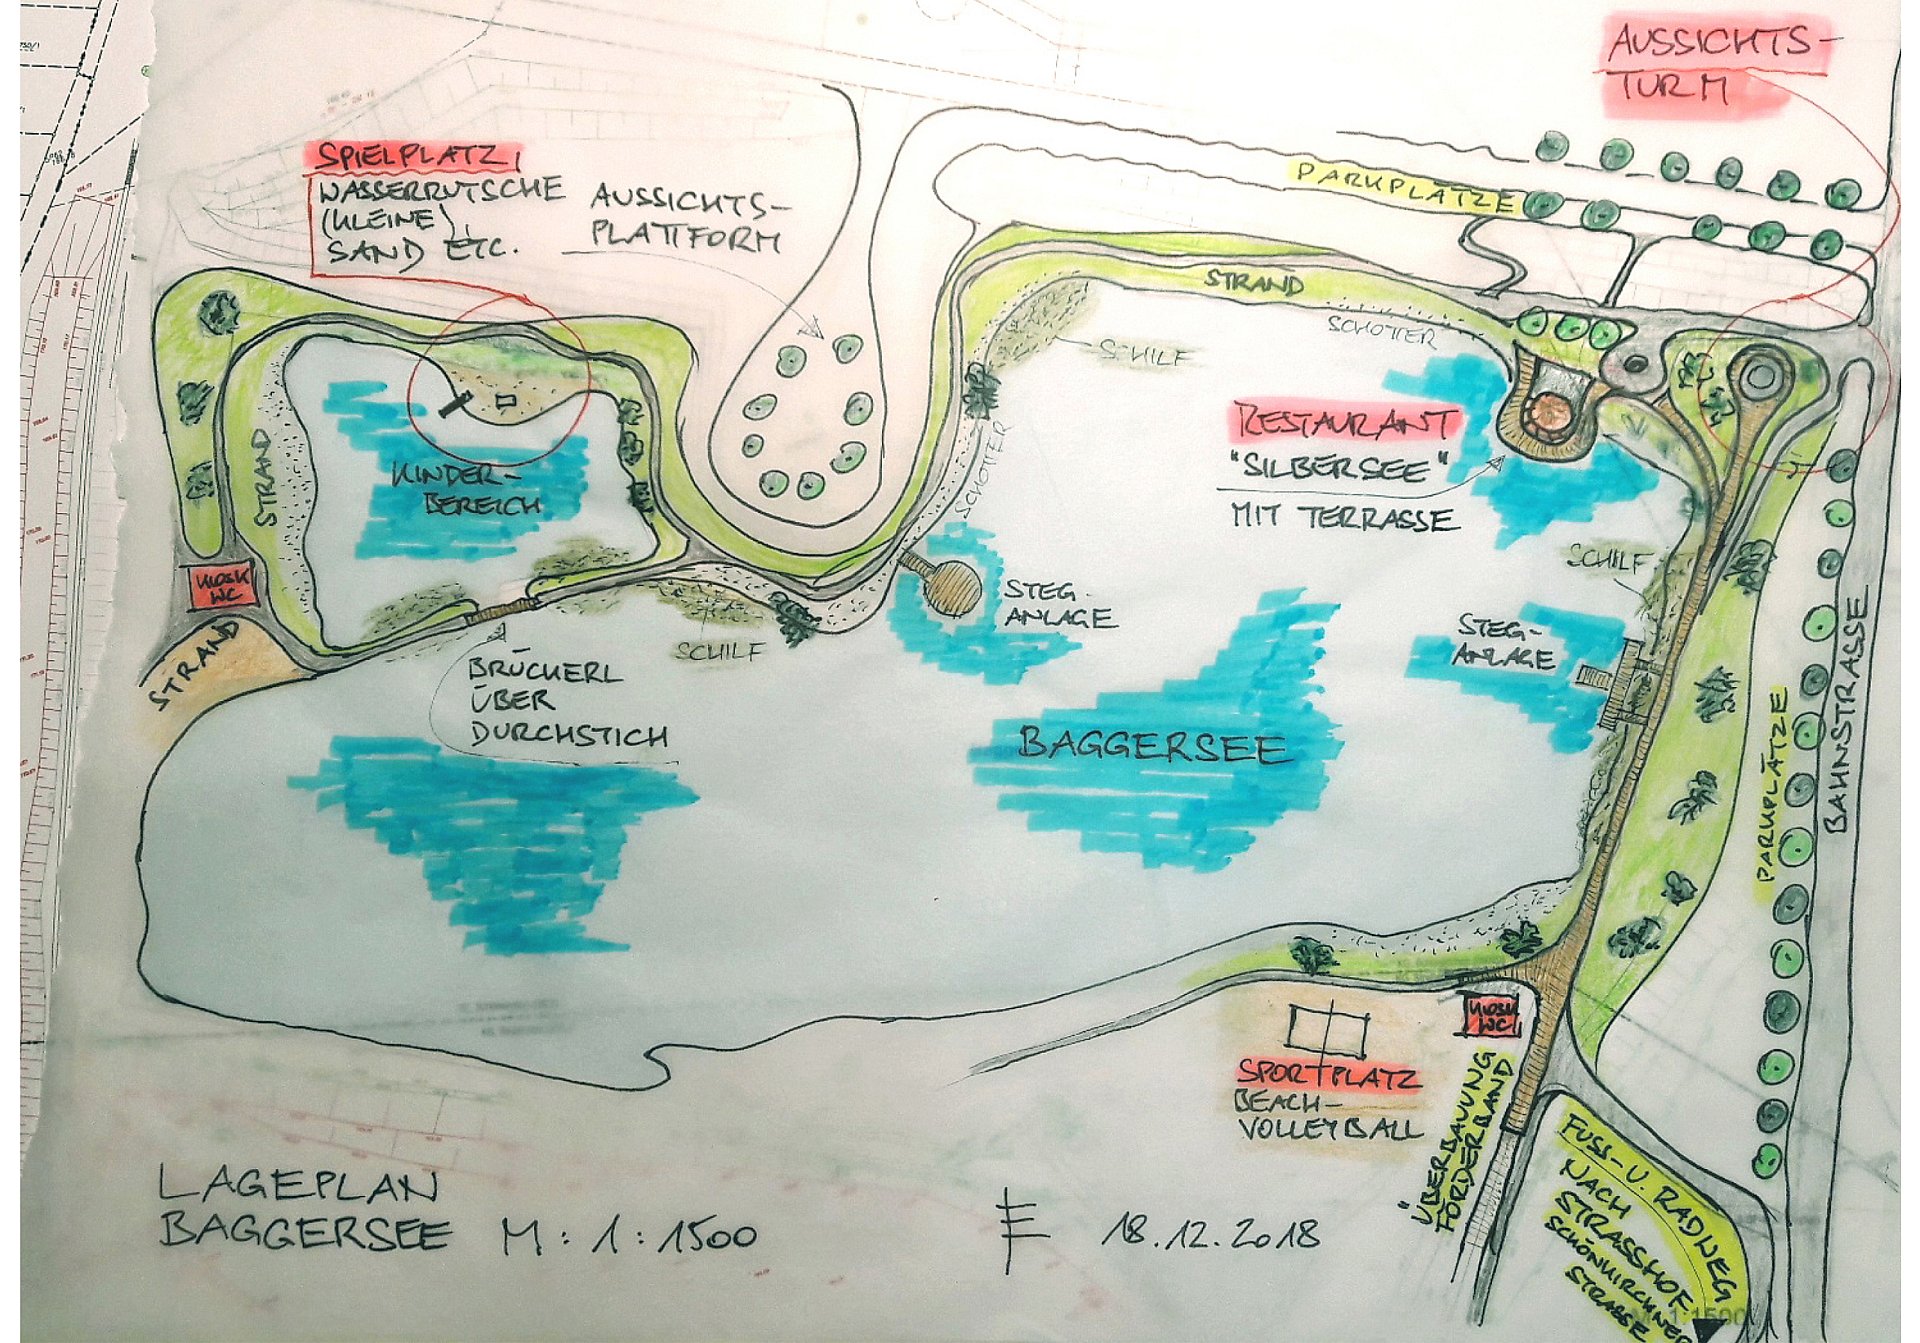 AUSSICHTS-
TURM
SPIELPLATZ,
WASSERRUTSCHE
(KLEINE),
SAND ETC.
AUSSICHTS-
PLATTFORM
PARKPLÄTZE
STRAND
SCHOTTER
SCHILF
RESTAURANT
"SILBERSEE"
MIT TERRASSE
STRAND
KINDER-
BEREICH
SCHOTTER
KIOSK
WC
STRAND
SCHILF
STEG-
ANLAGE
SCHILF
STEG-
ANLAGE
BRÜCKERL
ÜBER
DURCHSTICH
BAGGERSEE
PARKPLÄTZE
BAHNSTRASSE
KIOSK
WC
SPORTPLATZ
BEACH-
VOLLEYBALL
"ÜBERBAUUNG
FÖRDERBAND
FUSS- U. RADWEG
NACH
STRASSHOF
SCHÖNKIRCHNER
STRASSE
LAGEPLAN
BAGGERSEE M: 1:1500
18.12.2018